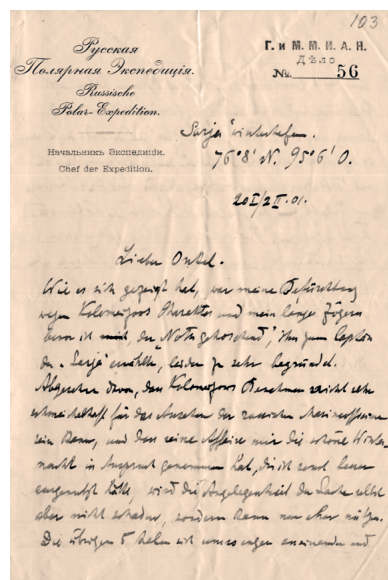 103
Русская
Полярная Экспедиція.
Russische
Polar-Expedition.
Начальникъ Экспедиціи.
Chef der Expedition.
Г. и М. М. И. А. Н.
Дѣло
№ 56
"Sarja" Winterhafen.
76°8' N. 95°6' O.
20 I/2 II. 01.
Lieber Onkel.
Wie es sich gezeigt hat, war meine Befürchtung
wegen Kolomeizoffs Charakter und mein langes Zögern
der Noth gehorchend, ihn zum Capitän
der "Sarja" erwählte, leider zu sehr begründet.
Abgesehen davon, dass Kolomeizoffs Benehmen nicht sehr
schmeichelhaft für das Ansehen der russischen Marineofficiere
sein kann, und dass seine Affaire mir die schöne Winter-
nacht in Anspruch genommen hat, die ich sonst besser
ausgenutzt hätte, wird die Angelegenheit der Sache selbst
aber nicht schaden, sondern kann nur eher nützen.
Die übrigen 5 haben sich einander und